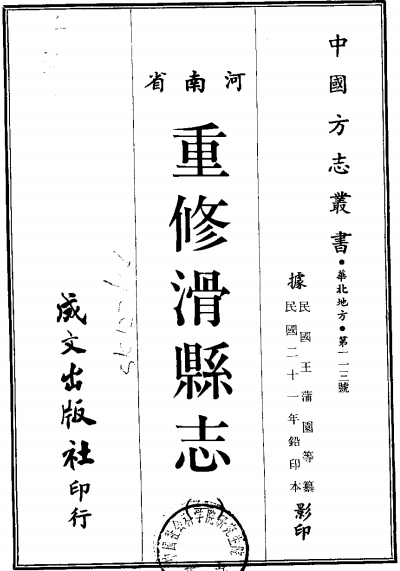 中國方志叢書●華北地方●第一一三號
據民國王蒲園等纂
民國二十一年鉛印本影印
河南省
重修滑縣志
成文出版社印行